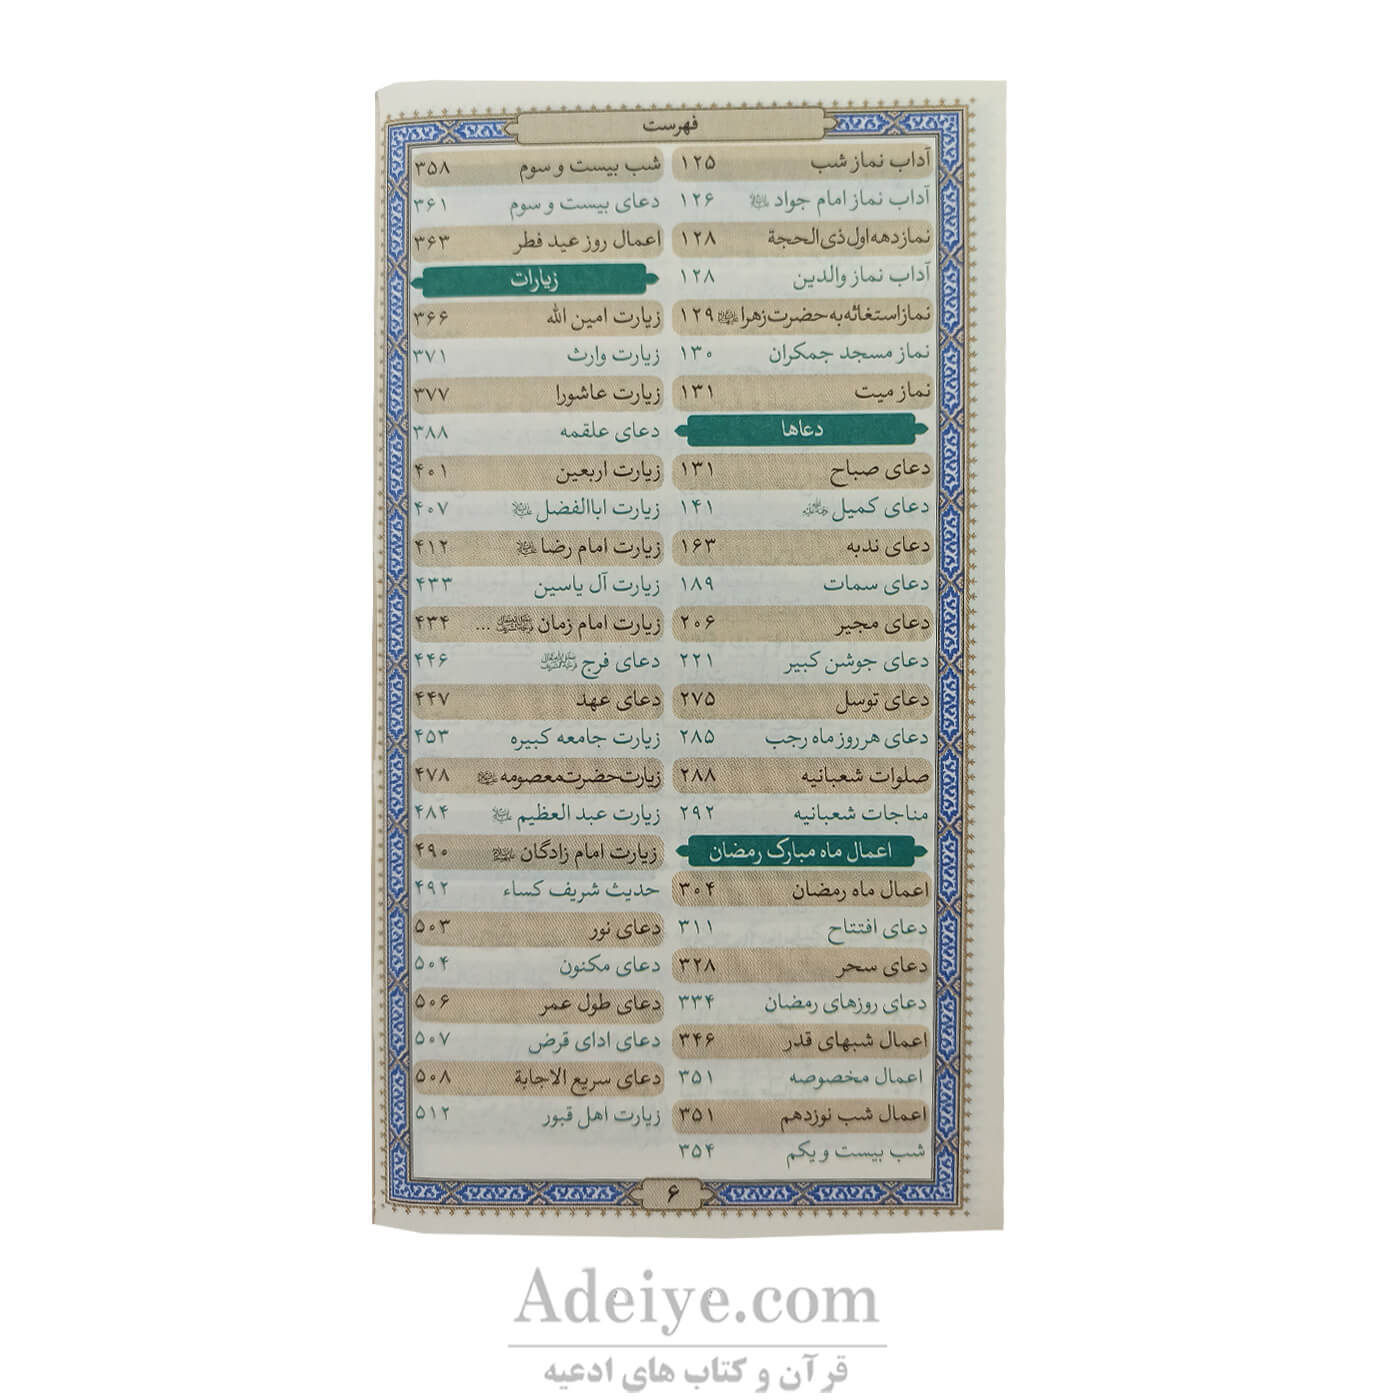 فهرست
آداب نماز شب ۱۲۵
آداب نماز امام جواد ۱۲۶
نماز دهه اول ذی الحجة ۱۲۸
آداب نماز والدین ۱۲۸
نماز استغاثه به حضرت زهرا ۱۲۹
نماز مسجد جمکران ۱۳۰
نماز میت ۱۳۱
دعاها
دعای صباح ۱۳۱
دعای کمیل ۱۴۱
دعای ندبه ۱۶۳
دعای سمات ۱۸۹
دعای مجیر ۲۰۶
دعای جوشن کبیر ۲۲۱
دعای توسل ۲۷۵
دعای هر روز ماه رجب ۲۸۵
صلوات شعبانیه ۲۸۸
مناجات شعبانیه ۲۹۲
اعمال ماه مبارک رمضان
اعمال ماه رمضان ۳۰۴
دعای افتتاح ۳۱۱
دعای سحر ۳۲۸
دعای روزهای رمضان ۳۳۴
اعمال شبهای قدر ۳۴۶
اعمال مخصوصه ۳۵۱
اعمال شب نوزدهم ۳۵۱
شب بیست و یکم ۳۵۴
شب بیست و سوم ۳۵۸
دعای بیست و سوم ۳۶۱
اعمال روز عید فطر ۳۶۳
زیارات
زیارت امین الله ۳۶۶
زیارت وارث ۳۷۱
زیارت عاشورا ۳۷۷
دعای علقمه ۳۸۸
زیارت اربعین ۴۰۱
زیارت اباالفضل ۴۰۷
زیارت امام رضا ۴۱۲
زیارت آل یاسین ۴۳۳
زیارت امام زمان ... ۴۳۴
دعای فرج ۴۴۶
دعای عهد ۴۴۷
زیارت جامعه کبیره ۴۵۳
زیارت حضرت معصومه ۴۷۸
زیارت عبد العظیم ۴۸۴
زیارت امام زادگان ۴۹۰
حدیث شریف کساء ۴۹۲
دعای نور ۵۰۳
دعای مکنون ۵۰۴
دعای طول عمر ۵۰۶
دعای ادای قرض ۵۰۷
دعای سریع الاجابة ۵۰۸
زیارت اهل قبور ۵۱۲
۶
Adeiye.com
قرآن و کتاب های ادعیه